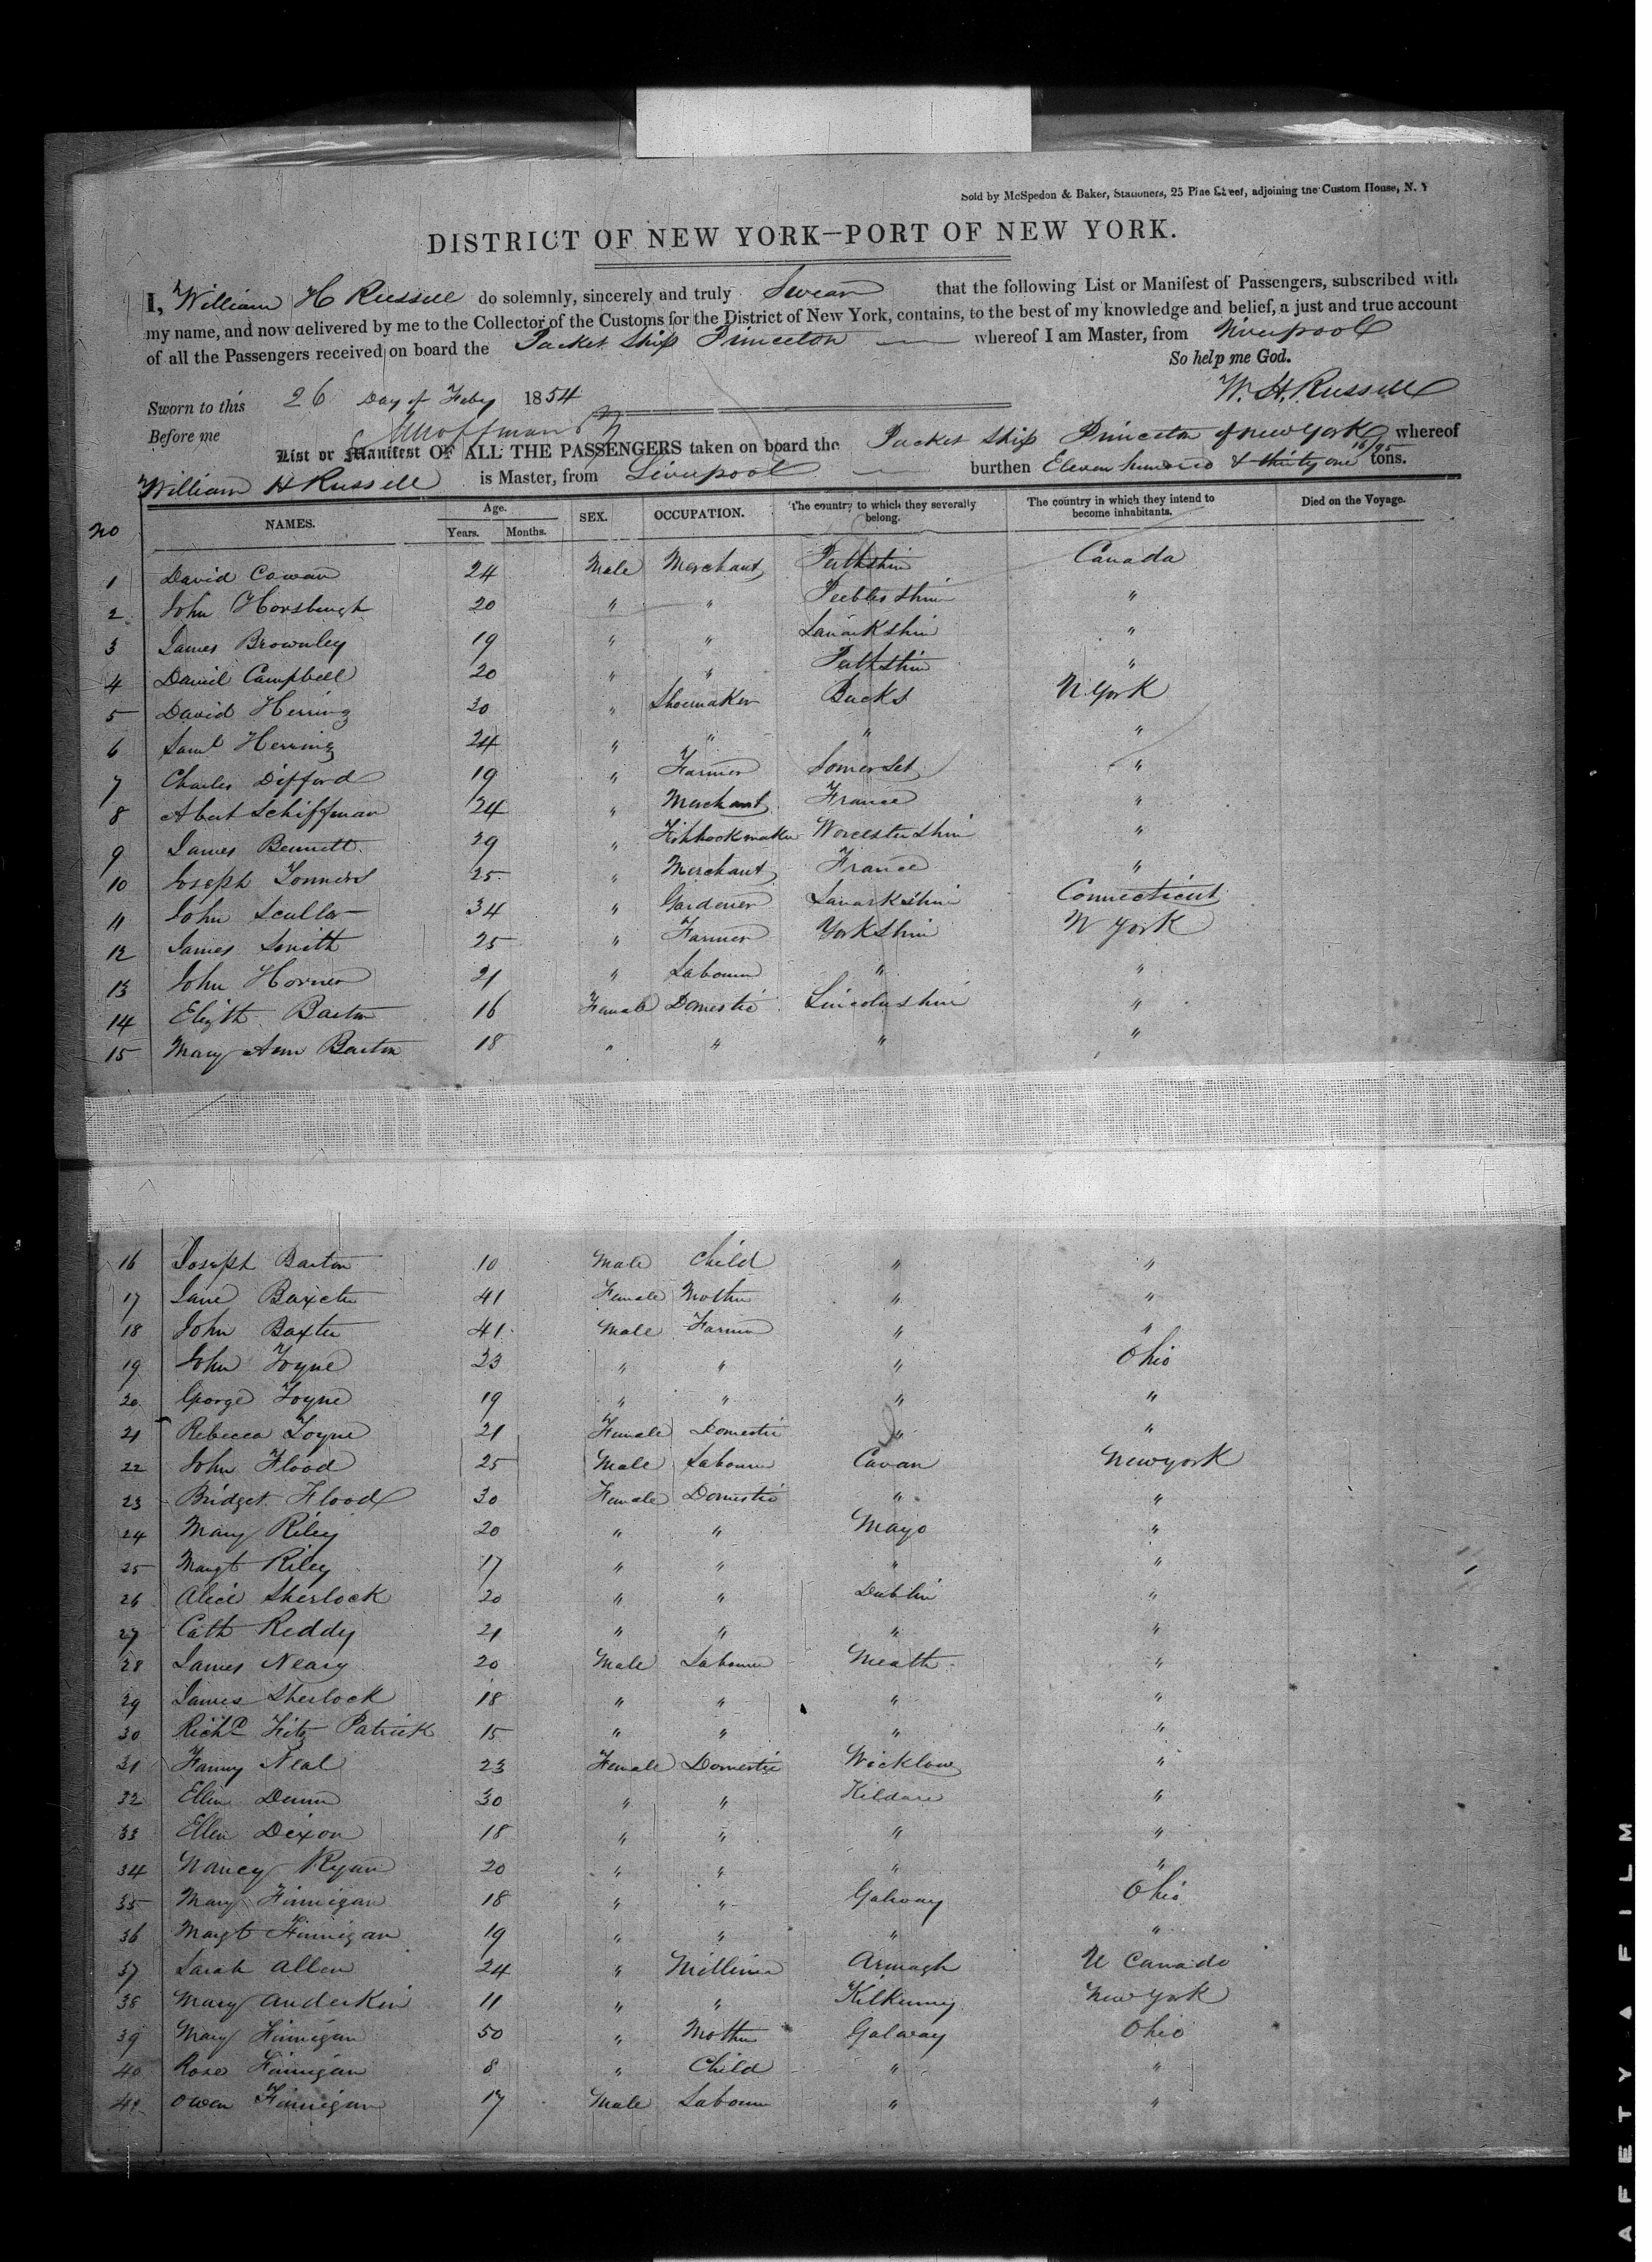 Sold by McSpedon & Baker, Stationers, 25 Pine Street, adjoining the Custom House, N. Y
DISTRICT OF NEW YORK—PORT OF NEW YORK.
I, William H Russell do solemnly, sincerely and truly Swear that the following List or Manifest of Passengers, subscribed with
my name, and now delivered by me to the Collector of the Customs for the District of New York, contains, to the best of my knowledge and belief, a just and true account
of all the Passengers received on board the Packet Ship Princeton whereof I am Master, from Liverpool
So help me God.
W. H. Russell
Sworn to this 26 Day of Feby 1854
Before me
List or Manifest OF ALL THE PASSENGERS taken on board the Packet Ship Princeton of New York whereof
William H Russell is Master, from Liverpool burthen Eleven hundred & thirty one 16/95 tons.
No NAMES. Age. Years. Months. SEX. OCCUPATION. The country to which they severally belong. The country in which they intend to become inhabitants. Died on the Voyage.
1 David Cowan 24 Male Merchant Perthshire Canada
2 John Horsburgh 20 " " Peebles shire "
3 James Brownley 19 " " Lanarkshire "
4 Daniel Campbell 20 " " Perthshire "
5 David Herring 30 " Shoemaker Bucks N. York
6 Saml Herring 24 " " " "
7 Charles Difford 19 " Farmer Somerset "
8 Abert Schiffman 24 " Merchant France "
9 James Bennett 29 " Fishhookmaker Worcestershire "
10 Joseph 25 " Merchant France "
11 John Scullar 34 " Gardener Lanarkshire Connecticut
12 James Smith 25 " Farmer Yorkshire N York
13 John Horner 21 " Labourer " "
14 Elizth Barton 16 Female Domestic Lincolnshire "
15 Mary Ann Barton 18 " " " "
16 Joseph Barton 10 Male Child " "
17 Jane Baxter 41 Female Mother " "
18 John Baxter 41 Male Farmer " "
19 John Toyne 23 " " " Ohio
20 George Toyne 19 " " " "
21 Rebecca Toyne 21 Female Domestic " "
22 John Flood 25 Male Labourer Cavan Newyork
23 Bridget Flood 30 Female Domestic " "
24 Mary Riley 20 " " Mayo "
25 Margt Riley 17 " " " "
26 Alice Sherlock 20 " " Dublin "
27 Cath Reddy 21 " " " "
28 James Neary 20 Male Labourer Meath "
29 James Sherlock 18 " " " "
30 Richd Fitz Patrick 15 " " " "
31 Fanny Neal 23 Female Domestic Wicklow "
32 Ellen Dunn 30 " " Kildare "
33 Ellen Dixon 18 " " " "
34 Nancy Ryan 20 " " " "
35 Mary Finnigan 18 " " Galway Ohio
36 Margt Finnigan 19 " " " "
37 Sarah Allen 24 " Milliner Armagh U Canada
38 Mary Anderkin 11 " " Kilkenny New York
39 Mary Finnigan 50 " Mother Galway Ohio
40 Rose Finnigan 8 " Child " "
41 Owen Finnigan 17 Male Labourer " "
AFETY ▲ FILM